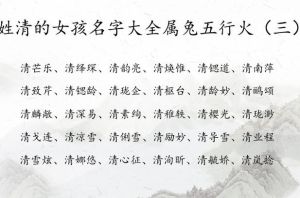 姓清的女孩名字大全属兔五行火（三）
清芒乐、清绎琛、清韵亮、清焕惟、清锶道、清南萍
清致芹、清锶龄、清珑企、清枢白、清龄妙、清鸥颂
清麟敝、清深易、清素绚、清稚轶、清樱光、清珑渺
清戈连、清凉雪、清俐雪、清励妙、清导雪、清业程
清雪炫、清娜恁、清心征、清洵昕、清毓娇、清岚捻